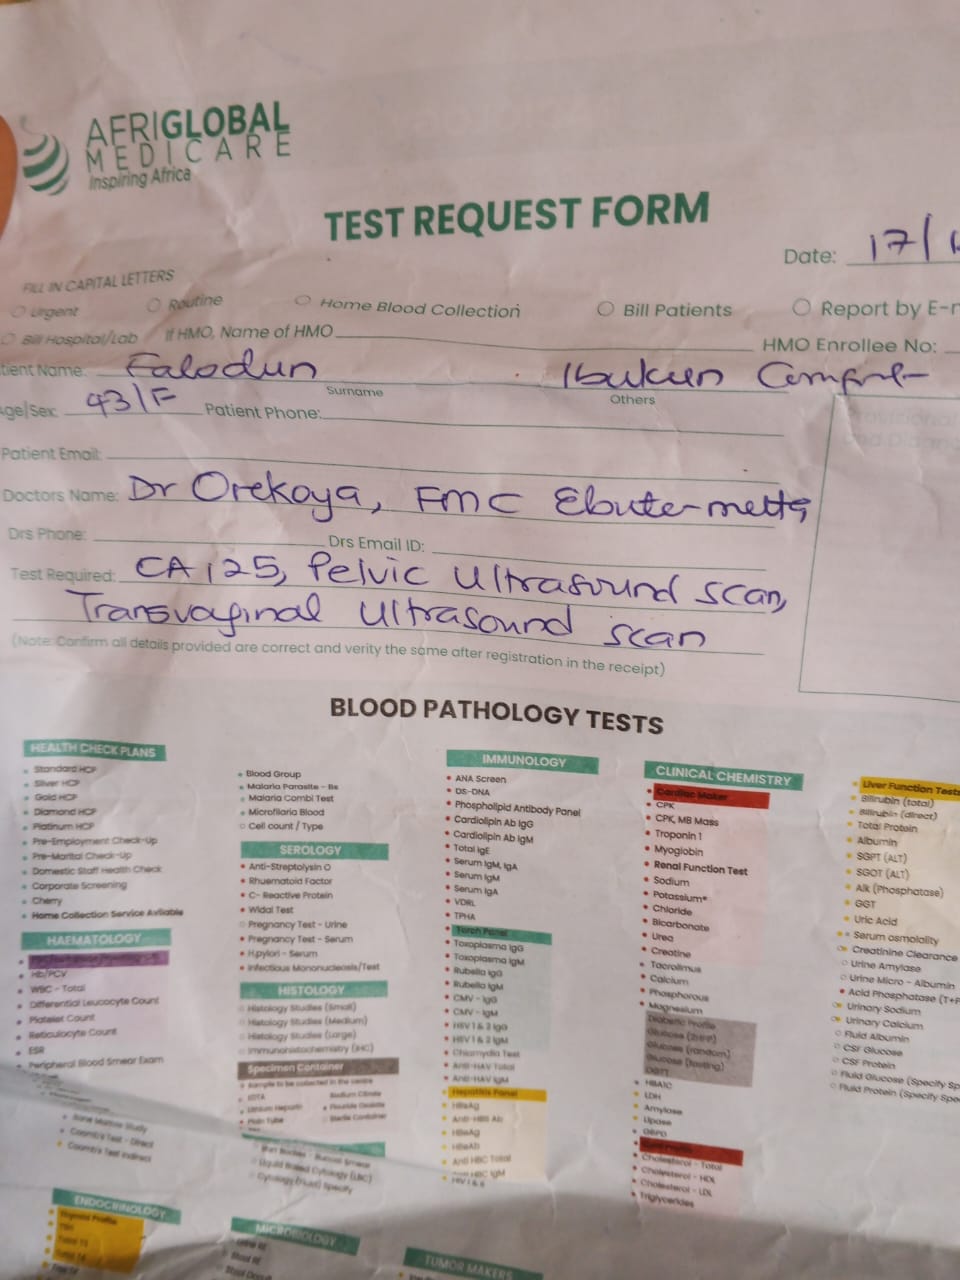 AFRIGLOBAL
MEDICARE
Inspiring Africa
TEST REQUEST FORM
Date: 17/
FILL IN CAPITAL LETTERS
Urgent
Routine
Home Blood Collection
Bill Patients
Report by E-
Bill Hospital/Lab
If HMO, Name of HMO
HMO Enrollee No:
tient Name: Falodun Ibukun
Surname
Others
ge/Sex: 43/F Patient Phone:
Patient Email:
Doctors Name: Dr Orekoya, FMC Ebute-metta
Drs Phone: Drs Email ID:
Test Required: CA 125, Pelvic Ultrasound scan,
Transvaginal Ultrasound scan
(Note: Confirm all details provided are correct and verity the same after registration in the receipt)
BLOOD PATHOLOGY TESTS
HEALTH CHECK PLANS
Standard HCP
Silver HCP
Gold HCP
Diamond HCP
Platinum HCP
Pre-Employment Check-Up
Pre-Marital Check-Up
Domestic Staff Health Check
Corporate Screening
Cherry
Home Collection Service Avliable
HAEMATOLOGY
Hb/PCV
WBC - Total
Differential Leucocyte Count
Platelet Count
Reticulocyte Count
ESR
Peripheral Blood Smear Exam
Bone Marrow Study
Coomb's Test - Direct
Coomb's Test Indirect
ENDOCRINOLOGY
Thyroid Profile
Blood Group
Malaria Parasite - Bs
Malaria Combi Test
Microfilaria Blood
Cell count / Type
SEROLOGY
Anti-Streptolysin O
Rhuematoid Factor
C- Reactive Protein
Widal Test
Pregnancy Test - Urine
Pregnancy Test - Serum
H.pylori - Serum
Infectious Mononucleosis/Test
HISTOLOGY
Histology Studies (Small)
Histology Studies (Medium)
Histology Studies (Large)
Immunohistochemistry (IHC)
Specimen Container
Sample to be collected in the centre
EDTA
Sodium Citrate
Lithium Heparin
Fluoride Oxalate
Plain Tube
Sterile Container
Liquid Based Cytology (LBC)
Cytology (Fluid) Specify
MICROBIOLOGY
IMMUNOLOGY
ANA Screen
DS-DNA
Phospholipid Antibody Panel
Cardiolipin Ab IgG
Cardiolipin Ab IgM
Total IgE
Serum IgM, IgA
Serum IgM
Serum IgA
VDRL
TPHA
Torch Panel
Toxoplasma IgG
Toxoplasma IgM
Rubella IgG
Rubella IgM
CMV - IgG
CMV - IgM
HSV 1 & 2 IgG
HSV 1 & 2 IgM
Chlamydia Test
Anti-HAV Total
Anti-HAV IgM
Hepatitis Panel
HBsAg
Anti-HBS Ab
HBeAg
HBeAb
Anti HBC Total
HBC IgM
TUMOR MAKERS
CLINICAL CHEMISTRY
Cardiac Maker
CPK
CPK, MB Mass
Troponin 1
Myoglobin
Renal Function Test
Sodium
Potassium*
Chloride
Bicarbonate
Urea
Creatine
Tacrolimus
Calcium
Phosphorous
Magnesium
Diabetic Profile
Glucose (2HPP)
Glucose (random)
Glucose (fasting)
OGTT
HBAIC
LDH
Amylase
Lipase
G6PD
Cholesterol - Total
Cholesterol - HDL
Cholesterol - LDL
Triglycerides
Liver Function Tests
Bilirubin (total)
Bilirubin (direct)
Total Protein
Albumin
SGPT (ALT)
SGOT (ALT)
Alk (Phosphatase)
GGT
Uric Acid
Serum osmolality
Creatinine Clearance
Urine Amylase
Urine Micro - Albumin
Acid Phosphatase (T+P
Urinary Sodium
Urinary Calcium
Fluid Albumin
CSF Glucose
CSF Protein
Fluid Glucose (Specify Sp
Fluid Protein (Specify Spe